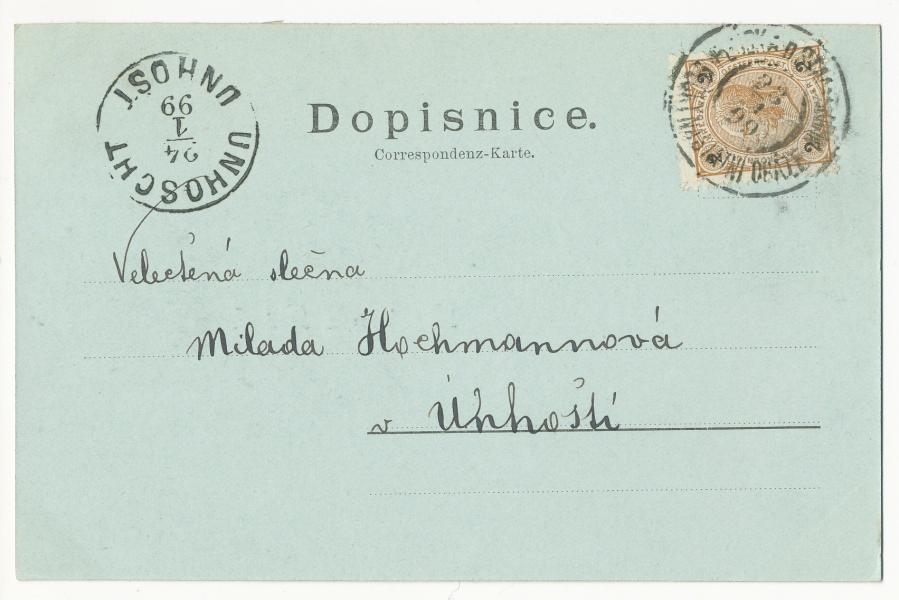 UNHOŠT UNHOSCHT
24
1
99
Dopisnice.
Correspondenz-Karte.
Velectěná slečna
Milada Hochmannová
v Únhošti